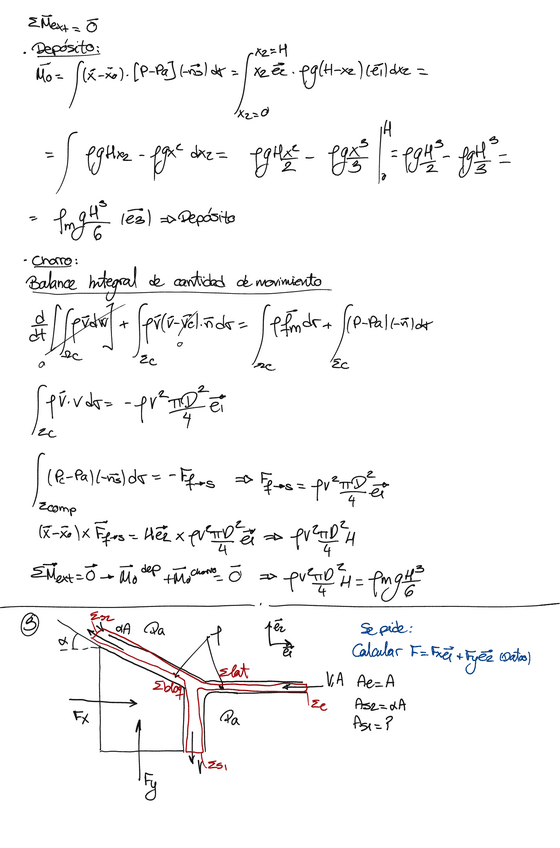 ΣM̄ext = Ō
· Depósito:
M̄o = ∫(x̄-x̄o)·[P-Pa](-n̄s)dσ = ∫_{x2=0}^{x2=H} x2 ē2 · ρg(H-x2)(ē1)dx2 =
= ∫ ρgHx2 - ρgx² dx2 = ρgHx²/2 - ρgx³/3 |₀^H = ρgH³/2 - ρgH³/3 =
= ρm g H³/6 (ē3) ⇒ Depósito
· Chorro:
Balance Integral de cantidad de movimiento
d/dt [∫_{ΣC} ρv̄dω] + ∫_{ΣC} ρv̄(v̄-v̄c)·n̄dσ = ∫_{ΣC} ρf̄m dσ + ∫_{ΣC} (P-Pa)(-n̄)dσ
0 0
∫_{ΣC} ρv̄·v dσ = -ρv² πD²/4 ē1
∫_{Σcomp} (Pc-Pa)(-n̄s)dσ = -F̄f→s ⇒ F̄f→s = ρv² πD²/4 ē1
(x̄-x̄o) x F̄f→s = Hē2 x ρv² πD²/4 ē1 ⇒ ρv² πD²/4 H
ΣM̄ext = Ō → M̄o^dep + M̄o^chorro = Ō ⇒ ρv² πD²/4 H = ρm g H³/6
③ Σs2 αA Pa ρ ē2 ē1 Se pide:
α Calcular F̄=Fxē1+Fyē2 (Datos)
Σbloq Σlat V,A Ae=A
Fx Pa Σe As2=αA
As1=?
V Σs1
Fy